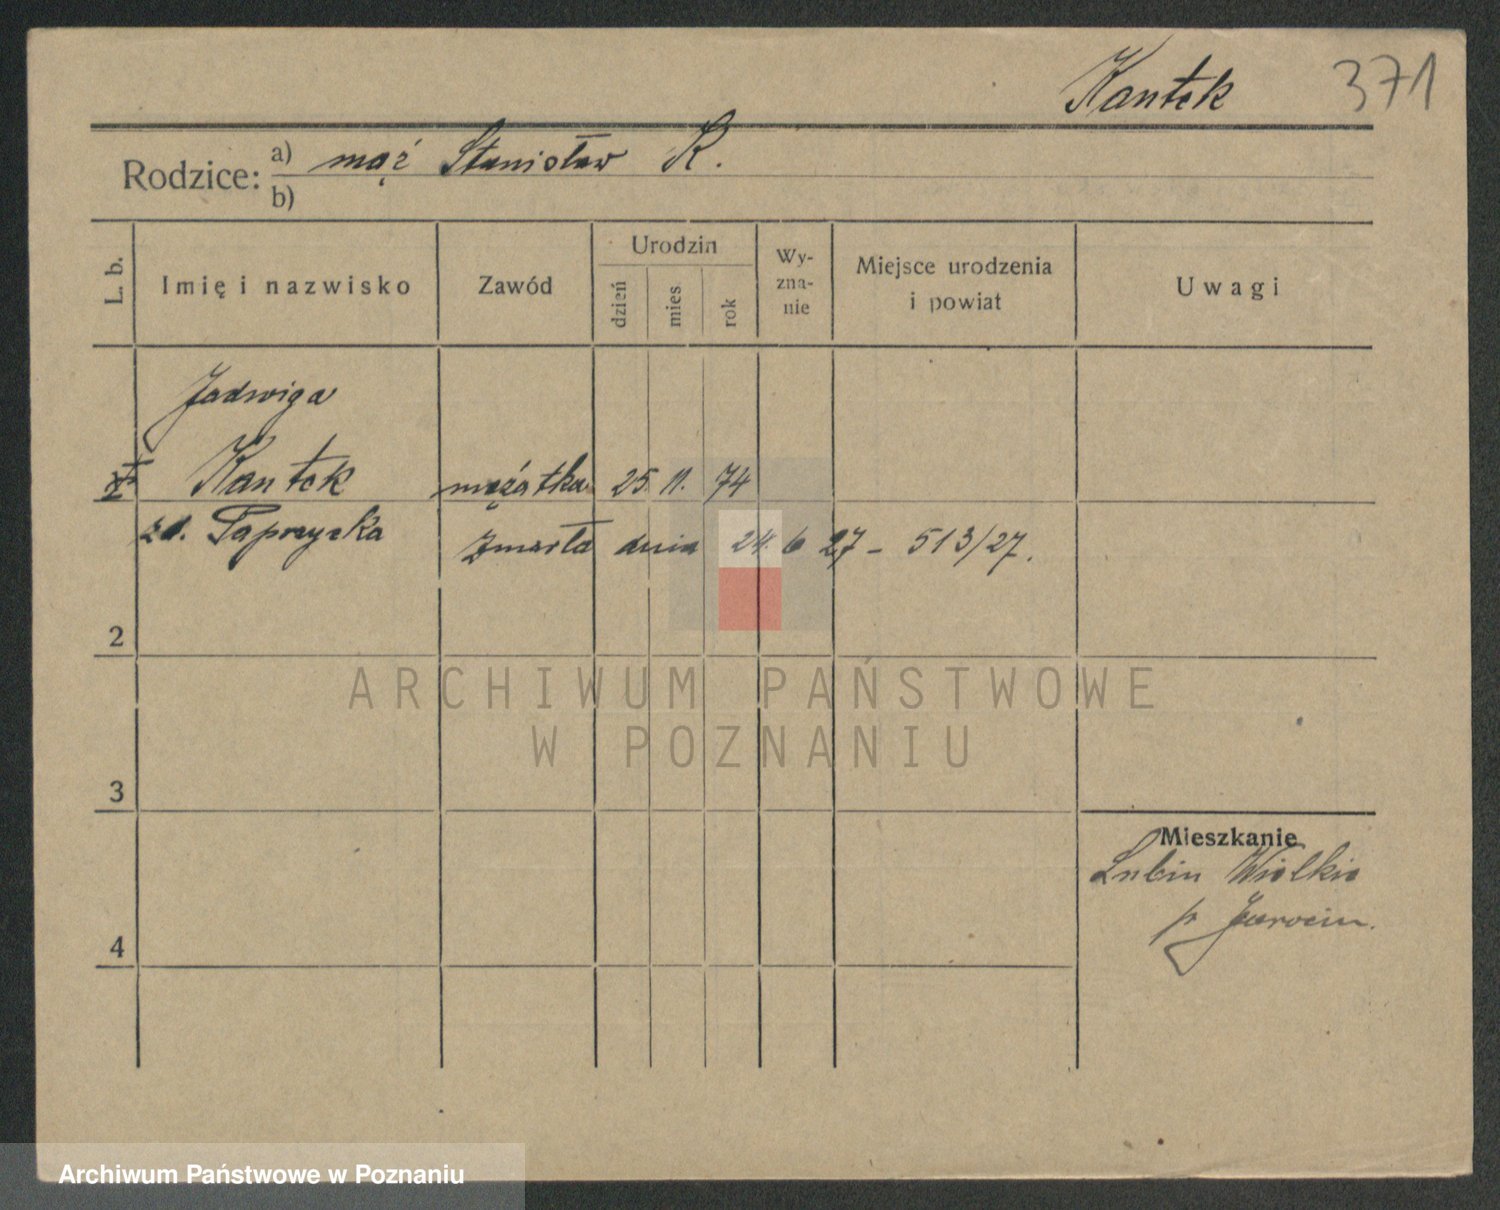 Kantek 371
Rodzice: a) mąż Stanisław K.
b)
L. b. Imię i nazwisko Zawód Urodzin dzień mies rok Wy-zna-nie Miejsce urodzenia i powiat Uwagi
Jadwiga
Kantek mężatka 25 11. 74
zd. Paprzycka zmarła dnia 24. 6 27 - 513/27.
2
3
Mieszkanie
Lubin Wielkie
p Jarocin.
4
ARCHIWUM PAŃSTWOWE
W POZNANIU
Archiwum Państwowe w Poznaniu